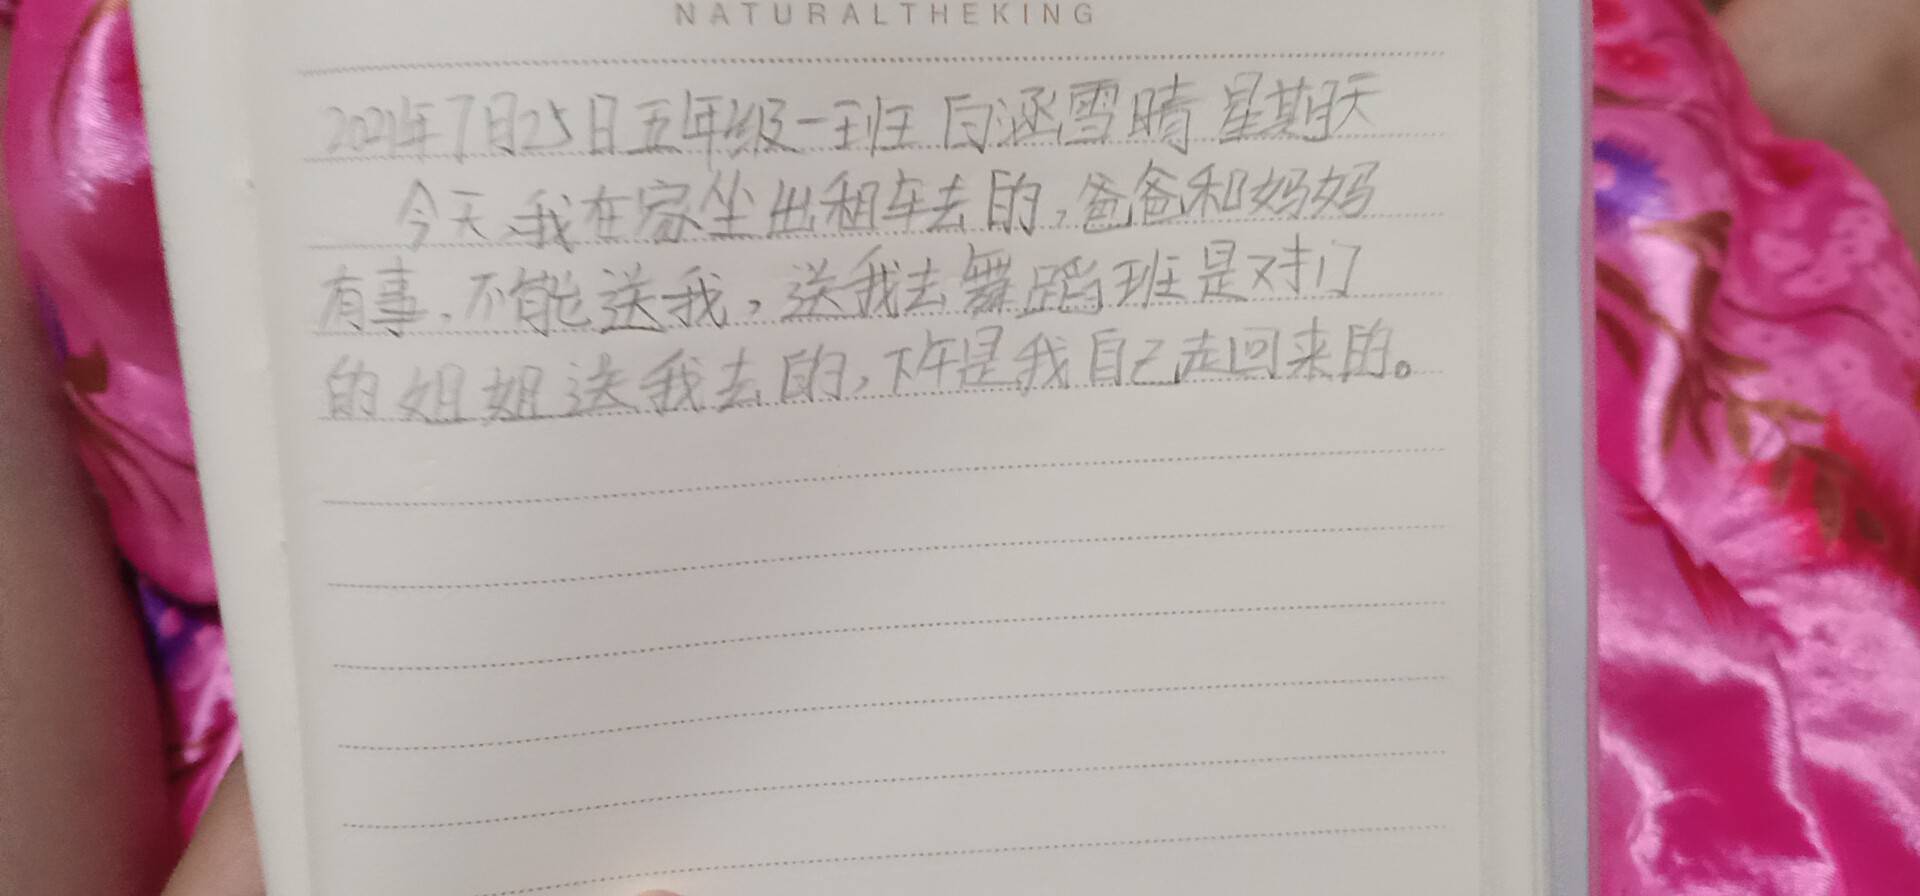 NATURALTHEKING
2021年7月25日五年级一班 白涵雪晴 星期天
今天,我在家坐出租车去的,爸爸和妈妈
有事.不能送我,送我去舞蹈班是对门
的姐姐送我去的,下午是我自己走回来的。